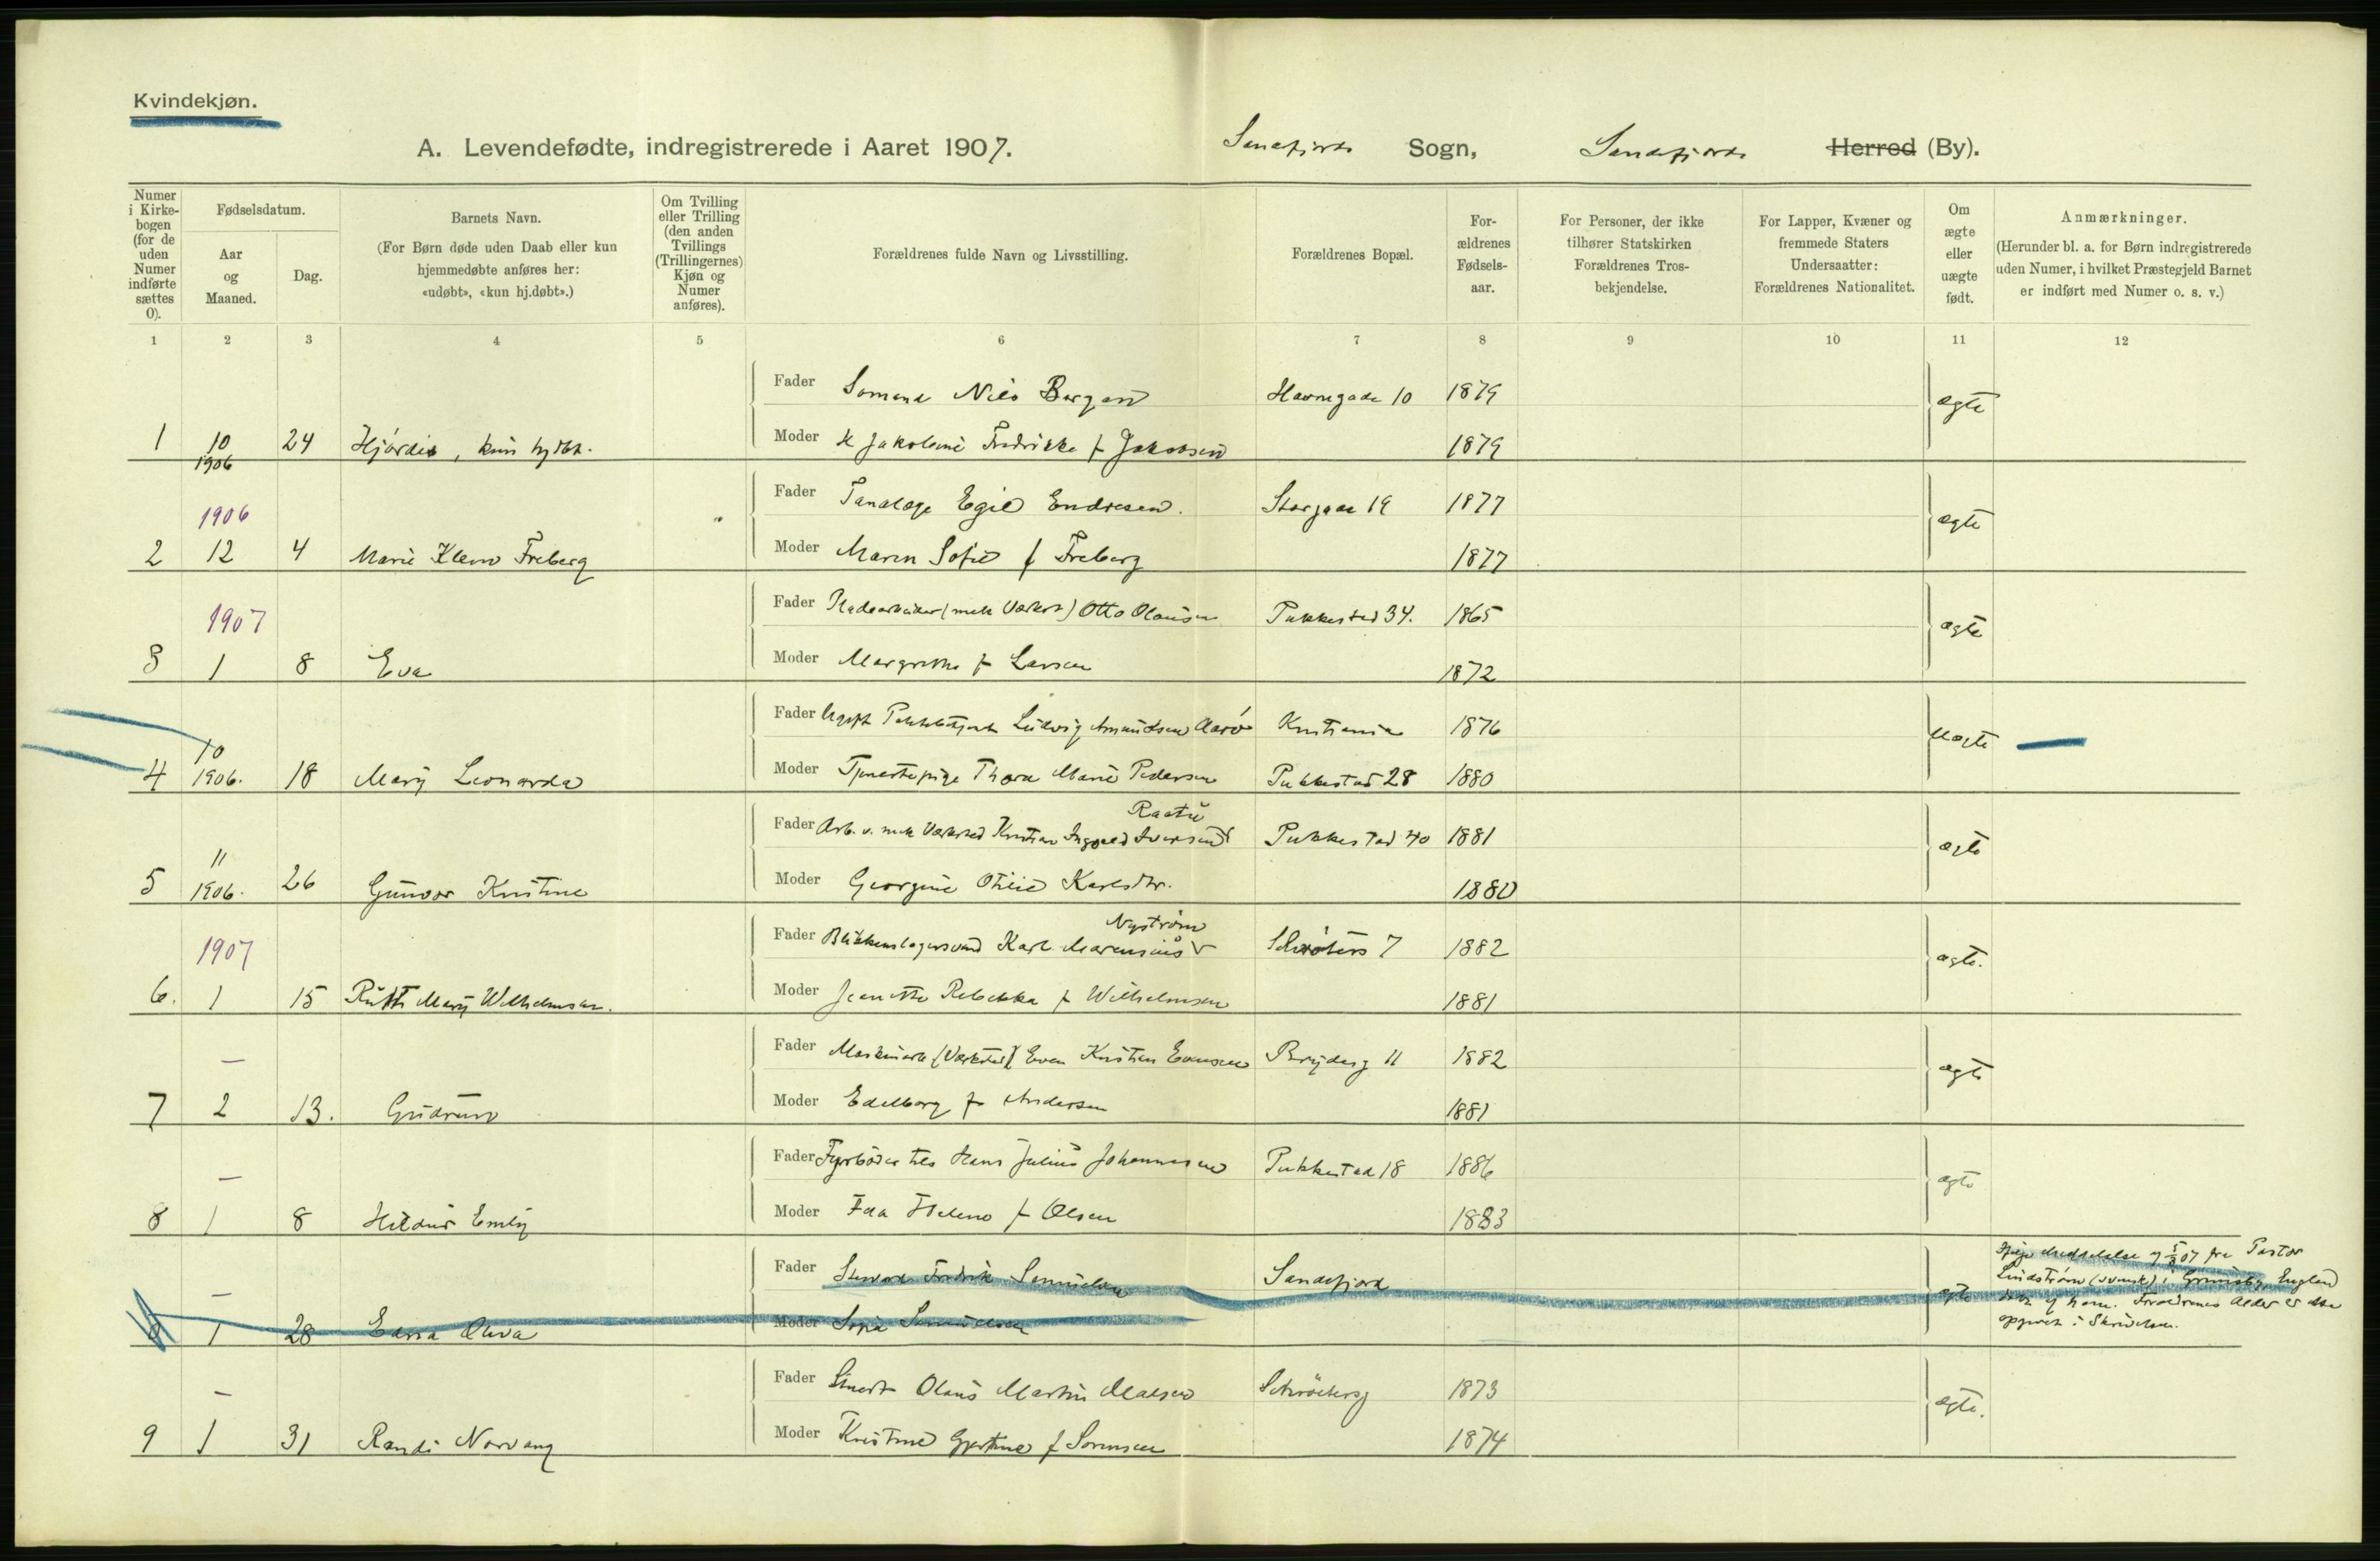 Kvindekjøn.
A. Levendefødte, indregistrerede i Aaret 1907. Sandefjords Sogn, Sandefjords Herred (By).
Numer i Kirkebogen (for de uden Numer indførte sættes 0).
Fødselsdatum.
Aar og Maaned.
Dag.
Barnets Navn.
(For Børn døde uden Daab eller kun hjemmedøbte anføres her: «udøbt», «kun hj.døbt».)
Om Tvilling eller Trilling (den anden Tvillings (Trillingernes) Kjøn og Numer anføres).
Forældrenes fulde Navn og Livsstilling.
Forældrenes Bopæl.
Forældrenes Fødselsaar.
For Personer, der ikke tilhører Statskirken Forældrenes Trosbekjendelse.
For Lapper, Kvæner og fremmede Staters Undersaatter: Forældrenes Nationalitet.
Om ægte eller uægte født.
Anmærkninger.
(Herunder bl. a. for Børn indregistrerede uden Numer, i hvilket Præstegjeld Barnet er indført med Numer o. s. v.)
1 2 3 4 5 6 7 8 9 10 11 12
Fader Sømand Nils Bergan Havnegade 10 1879 ægte
1 10 1906 24 Hjørdis, kun hj.dbt. Moder Jakobine Fredrikke f Jakobsen 1879
Fader Tandlæge Egil Endresen. Storgade 19 1877 ægte
2 1906 12 4 Marie Klem Freberg Moder Maren Sofie f Freberg 1877
Fader Pladearbeider (mek Værkst) Otto Olausen Pukkestad 34. 1865 ægte
3 1907 1 8 Eva Moder Margrethe f Larsen 1872
Fader Ugift Ludvig Amundsen Aarø Kristiania 1876 uægte
4 10 1906. 18 Mary Leonarda Moder Tjenestepige Thora Marie Pedersen Pukkestad 28 1880
Raastu
Fader Arb. v. mek Værksted Kristian Ingvald Iversen Pukkestad 40 1881 ægte
5 11 1906. 26 Gunvor Kristine Moder Georgine Otilie Karlsdtr. 1880
Nystrøm
Fader Blikkenslagersvend Karl Marensius Schrøters 7 1882 ægte.
6. 1907 1 15 Ruth Mary Wilhelmsen. Moder Jeanette Rebekka f Wilhelmsen 1881
Fader Maskinarb (Værksted) Even Kristian Evensen Brydesg 11 1882 ægte
7 — 2 13. Gudrun Moder Edelborg f Andersen 1881
Fader Fyrbøder Hans Julius Johannesen Pukkestad 18 1886 ægte
8 — 1 8 Hildur Emily Moder Helene f Olsen 1883
Fader Steward Fredrik Samuelsen Sandefjord ægte
Ifølge Meddelelse af 5/3 07 fra Pastor
Lindstrøm (svensk) i Grimsby, England
døbt af ham. Forældrenes Alder er ikke
opgivet i Skrivelsen.
0 — 1 28 Edna Oliva Moder Sofia Samuelsen
Fader Smed Olaus Martin Madsen Schrøtersg 1873 ægte.
9 — 1 31 Randi Norvang Moder Kristine Gjertine f Sørensen 1874